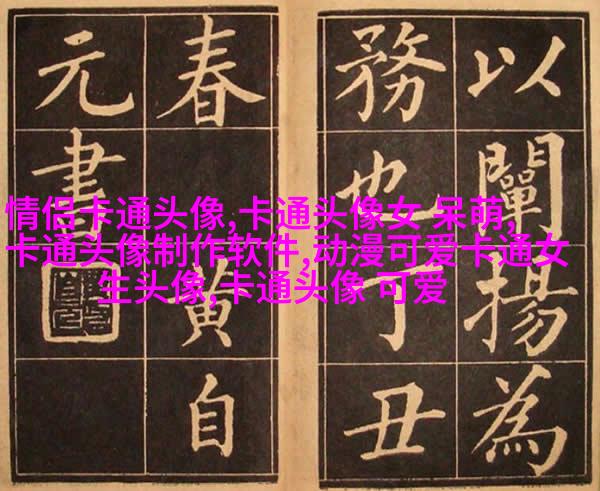 以闡揚為
務也丁丑
春黄自
元書
情侣卡通头像,卡通头像女 呆萌,
卡通头像制作软件,动漫可爱卡通女
生头像,卡通头像 可爱